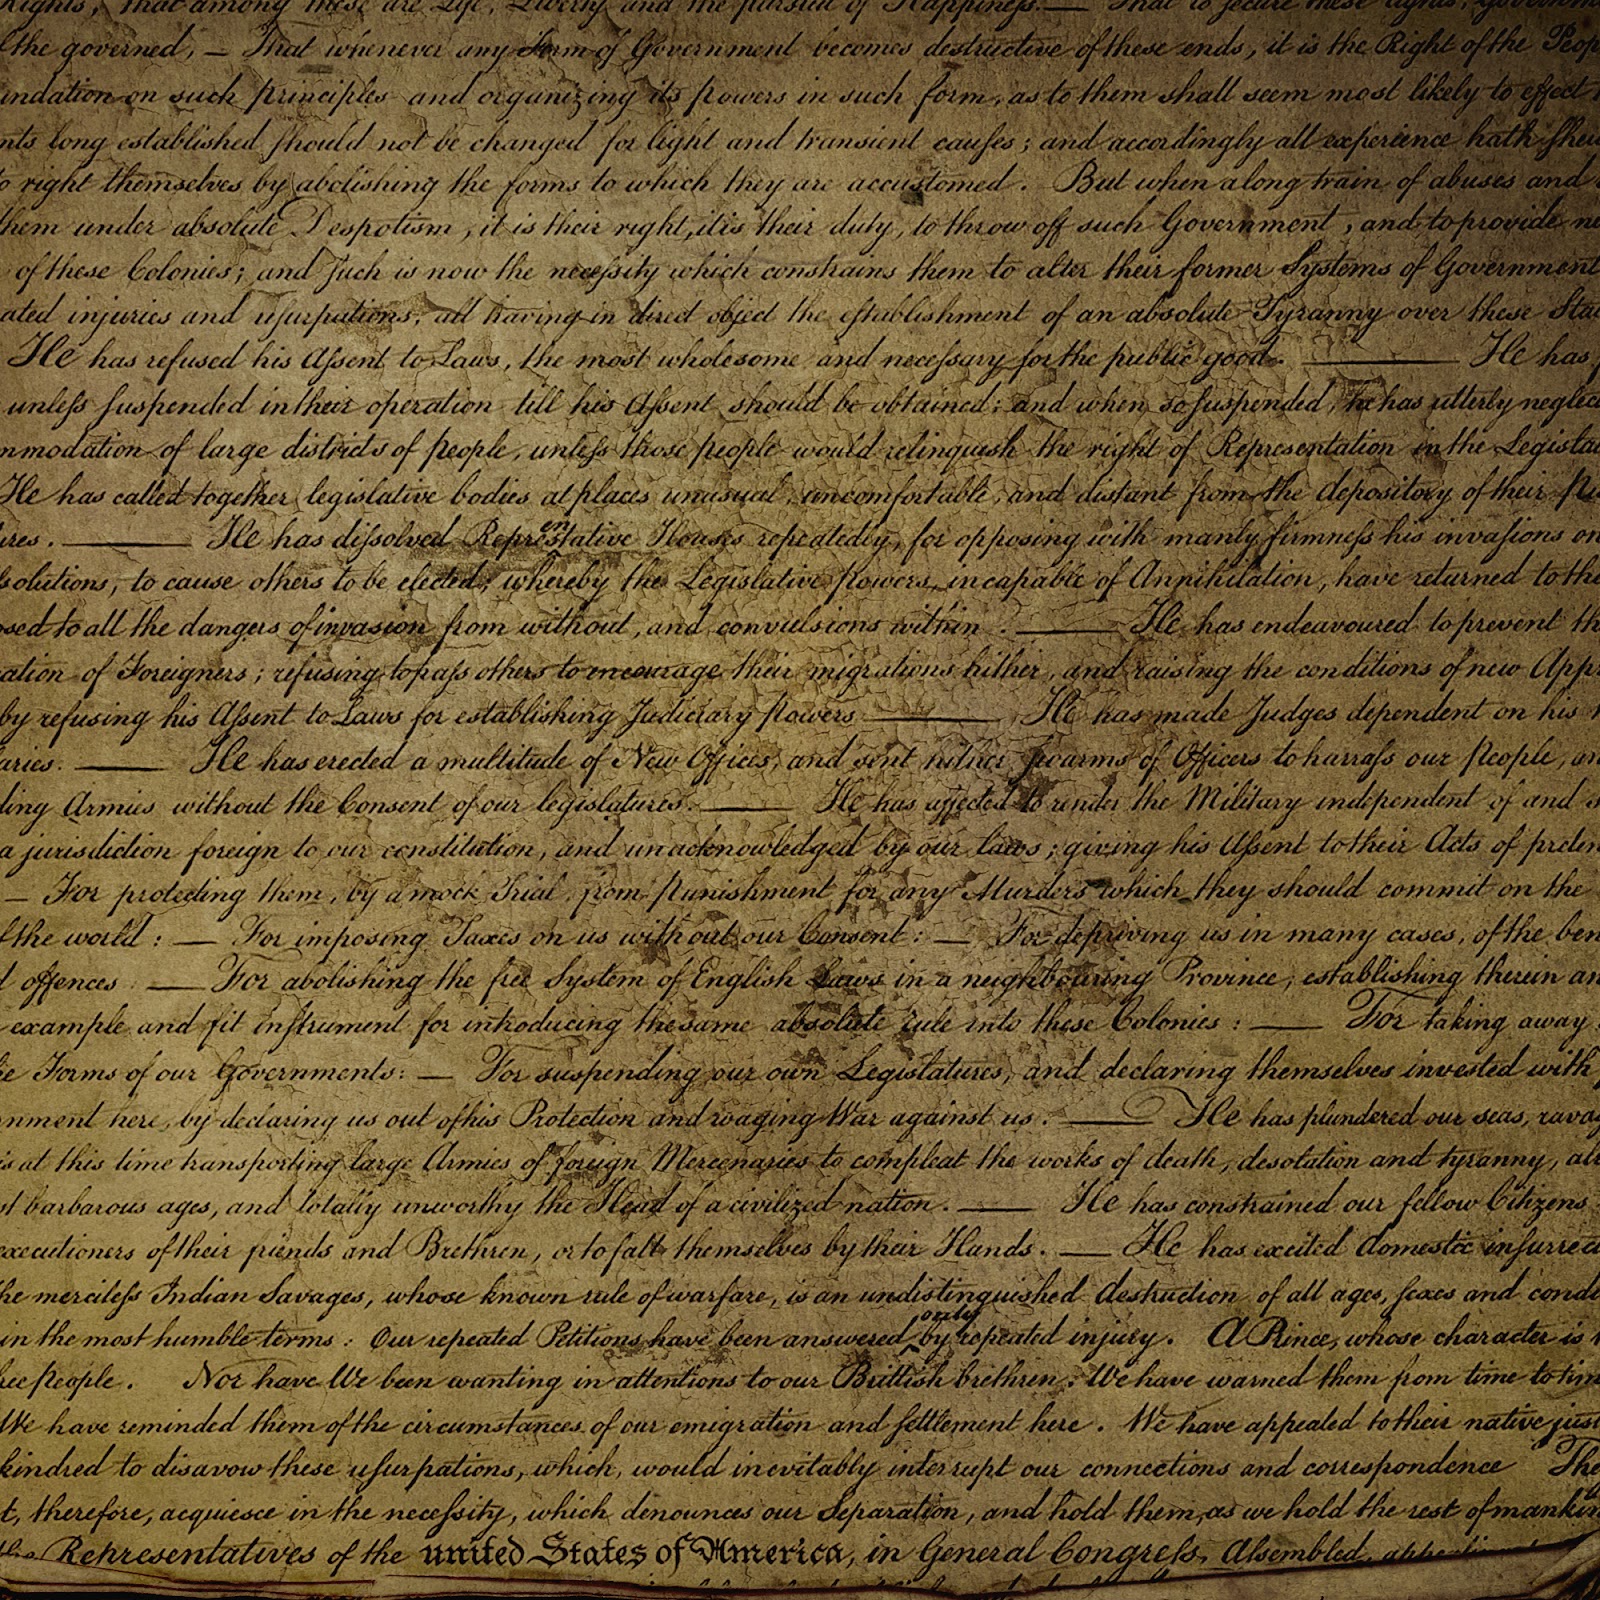 Rights, that among these are Life, Liberty and the pursuit of Happiness.— That to secure these rights, Governm
the governed, — That whenever any Form of Government becomes destructive of these ends, it is the Right of the Peop
undation on such principles and organizing its powers in such form, as to them shall seem most likely to effect
nts long established should not be changed for light and transient causes; and accordingly all experience hath shew
o right themselves by abolishing the forms to which they are accustomed. But when a long train of abuses and
them under absolute Despotism, it is their right, it is their duty, to throw off such Government, and to provide ne
of these Colonies; and such is now the necessity which constrains them to alter their former Systems of Government
ated injuries and usurpations, all having in direct object the establishment of an absolute Tyranny over these Stat
He has refused his Assent to Laws, the most wholesome and necessary for the public good. —— He has
unless suspended in their operation till his Assent should be obtained; and when so suspended, he has utterly neglec
mmodation of large districts of people, unless those people would relinquish the right of Representation in the Legislat
He has called together legislative bodies at places unusual, uncomfortable, and distant from the depository of their Pu
ures. —— He has dissolved Representative Houses repeatedly, for opposing with manly firmness his invasions on
solutions, to cause others to be elected; whereby the Legislative powers, incapable of Annihilation, have returned to the
osed to all the dangers of invasion from without, and convulsions within. —— He has endeavoured to prevent th
ation of Foreigners; refusing to pass others to encourage their migrations hither, and raising the conditions of new Appr
by refusing his Assent to Laws for establishing Judiciary powers —— He has made Judges dependent on his
aries. —— He has erected a multitude of New Offices, and sent hither swarms of Officers to harrass our People, an
ding Armies without the Consent of our legislatures. —— He has affected to render the Military independent of and s
a jurisdiction foreign to our constitution, and unacknowledged by our laws; giving his Assent to their Acts of preten
— For protecting them, by a mock Trial, from punishment for any Murders which they should commit on the
f the world: — For imposing Taxes on us without our Consent: — For depriving us in many cases, of the ben
d offences — For abolishing the free System of English Laws in a neighbouring Province, establishing therein an
example and fit instrument for introducing the same absolute rule into these Colonies: —— For taking away
he Forms of our Governments: — For suspending our own Legislatures, and declaring themselves invested with
rnment here, by declaring us out of his Protection and waging War against us. —— He has plundered our seas, ravag
is at this time transporting large Armies of foreign Mercenaries to compleat the works of death, desolation and tyranny, alr
st barbarous ages, and totally unworthy the Head of a civilized nation. —— He has constrained our fellow Citizens
executioners of their friends and Brethren, or to fall themselves by their Hands. —— He has excited domestic insurrect
he merciless Indian Savages, whose known rule of warfare, is an undistinguished destruction of all ages, sexes and condi
in the most humble terms: Our repeated Petitions have been answered only by repeated injury. A Prince, whose character is
free people. Nor have We been wanting in attentions to our Brittish brethren. We have warned them from time to tim
We have reminded them of the circumstances of our emigration and settlement here. We have appealed to their native just
kindred to disavow these usurpations, which, would inevitably interrupt our connections and correspondence The
t, therefore, acquiesce in the necessity, which denounces our Separation, and hold them, as we hold the rest of mankin
the Representatives of the united States of America, in General Congress, Assembled,